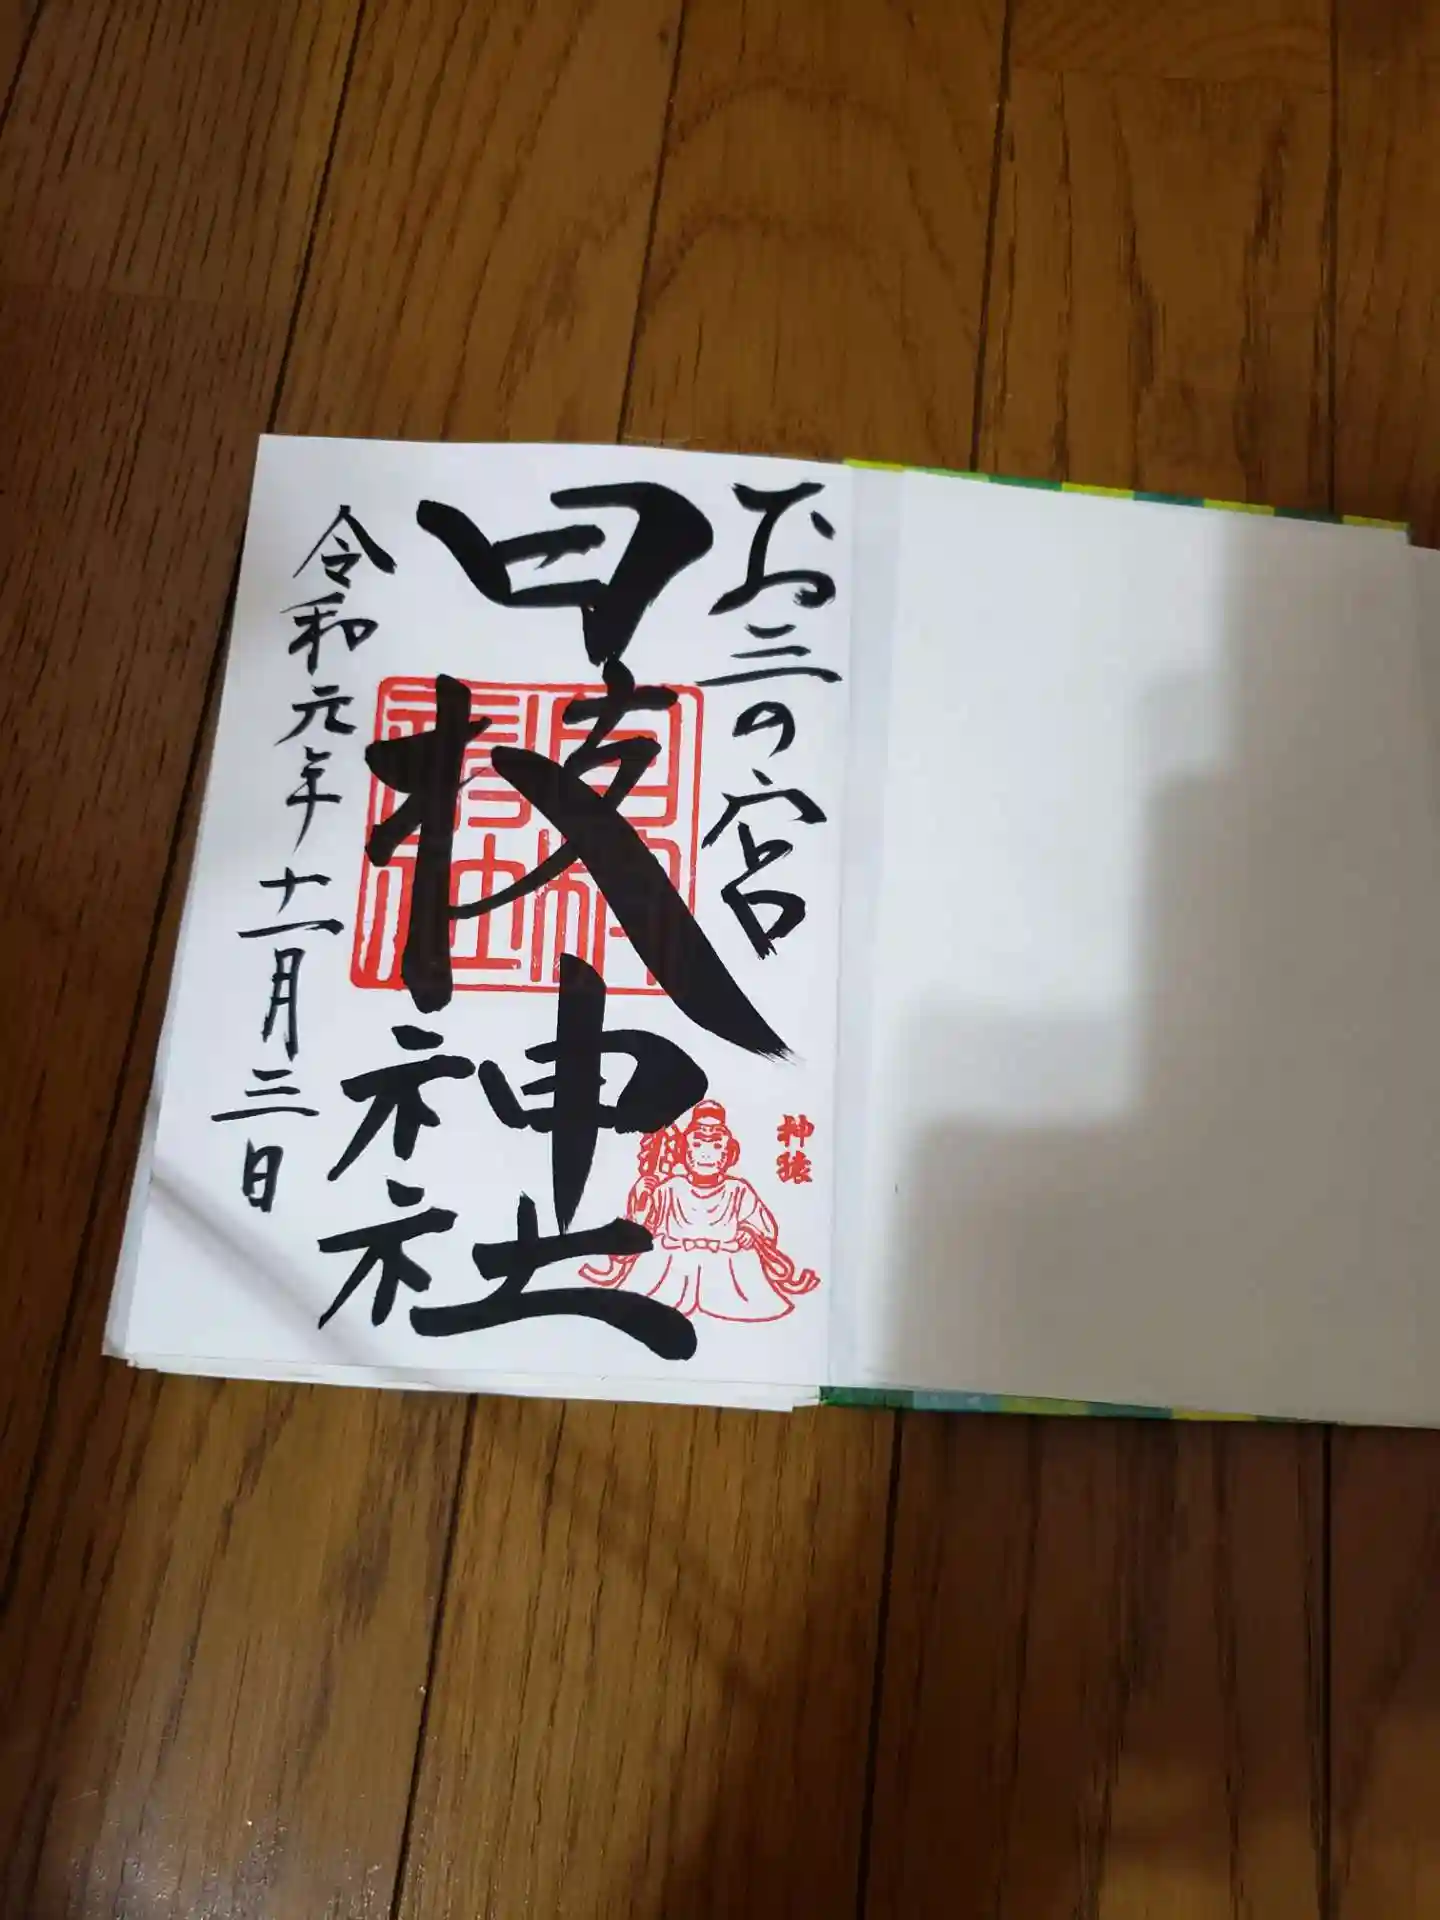 お三の宮
日枝神社
日枝神社
神猿
令和元年十一月三日